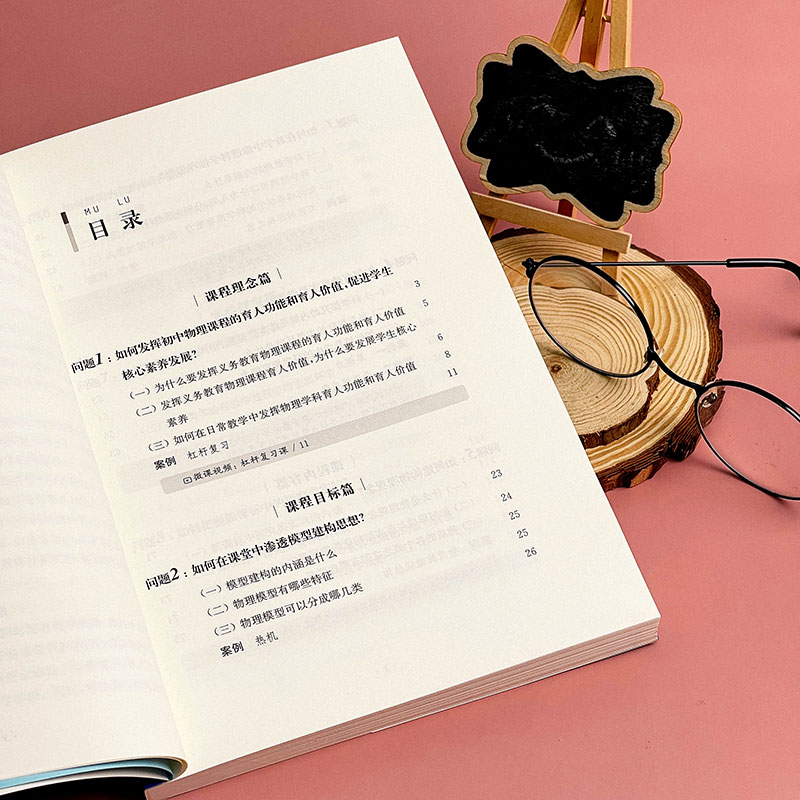 MU LU
目录
课程理念篇
问题1：如何发挥初中物理课程的育人功能和育人价值，促进学生 3
核心素养发展？
（一）为什么要发挥义务教育物理课程的育人功能和育人价值 5
（二）发挥义务教育物理课程育人价值，为什么要发展学生核心
素养 6
（三）如何在日常教学中发挥物理学科育人功能和育人价值 8
案例 杠杆复习 11
微课视频：杠杆复习课 / 11
课程目标篇
问题2：如何在课堂中渗透模型建构思想？ 23
（一）模型建构的内涵是什么 24
（二）物理模型有哪些特征 25
（三）物理模型可以分成哪几类 25
案例 热机 26